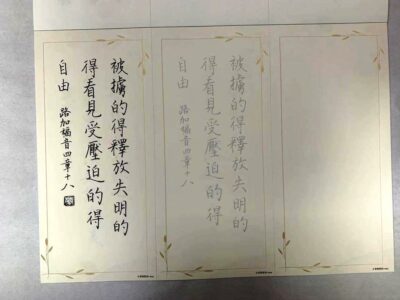 被擄的得釋放失明的
得看見受壓迫的得
自由
路加福音四章十八
被擄的得釋放失明的
得看見受壓迫的得
自由
路加福音四章十八